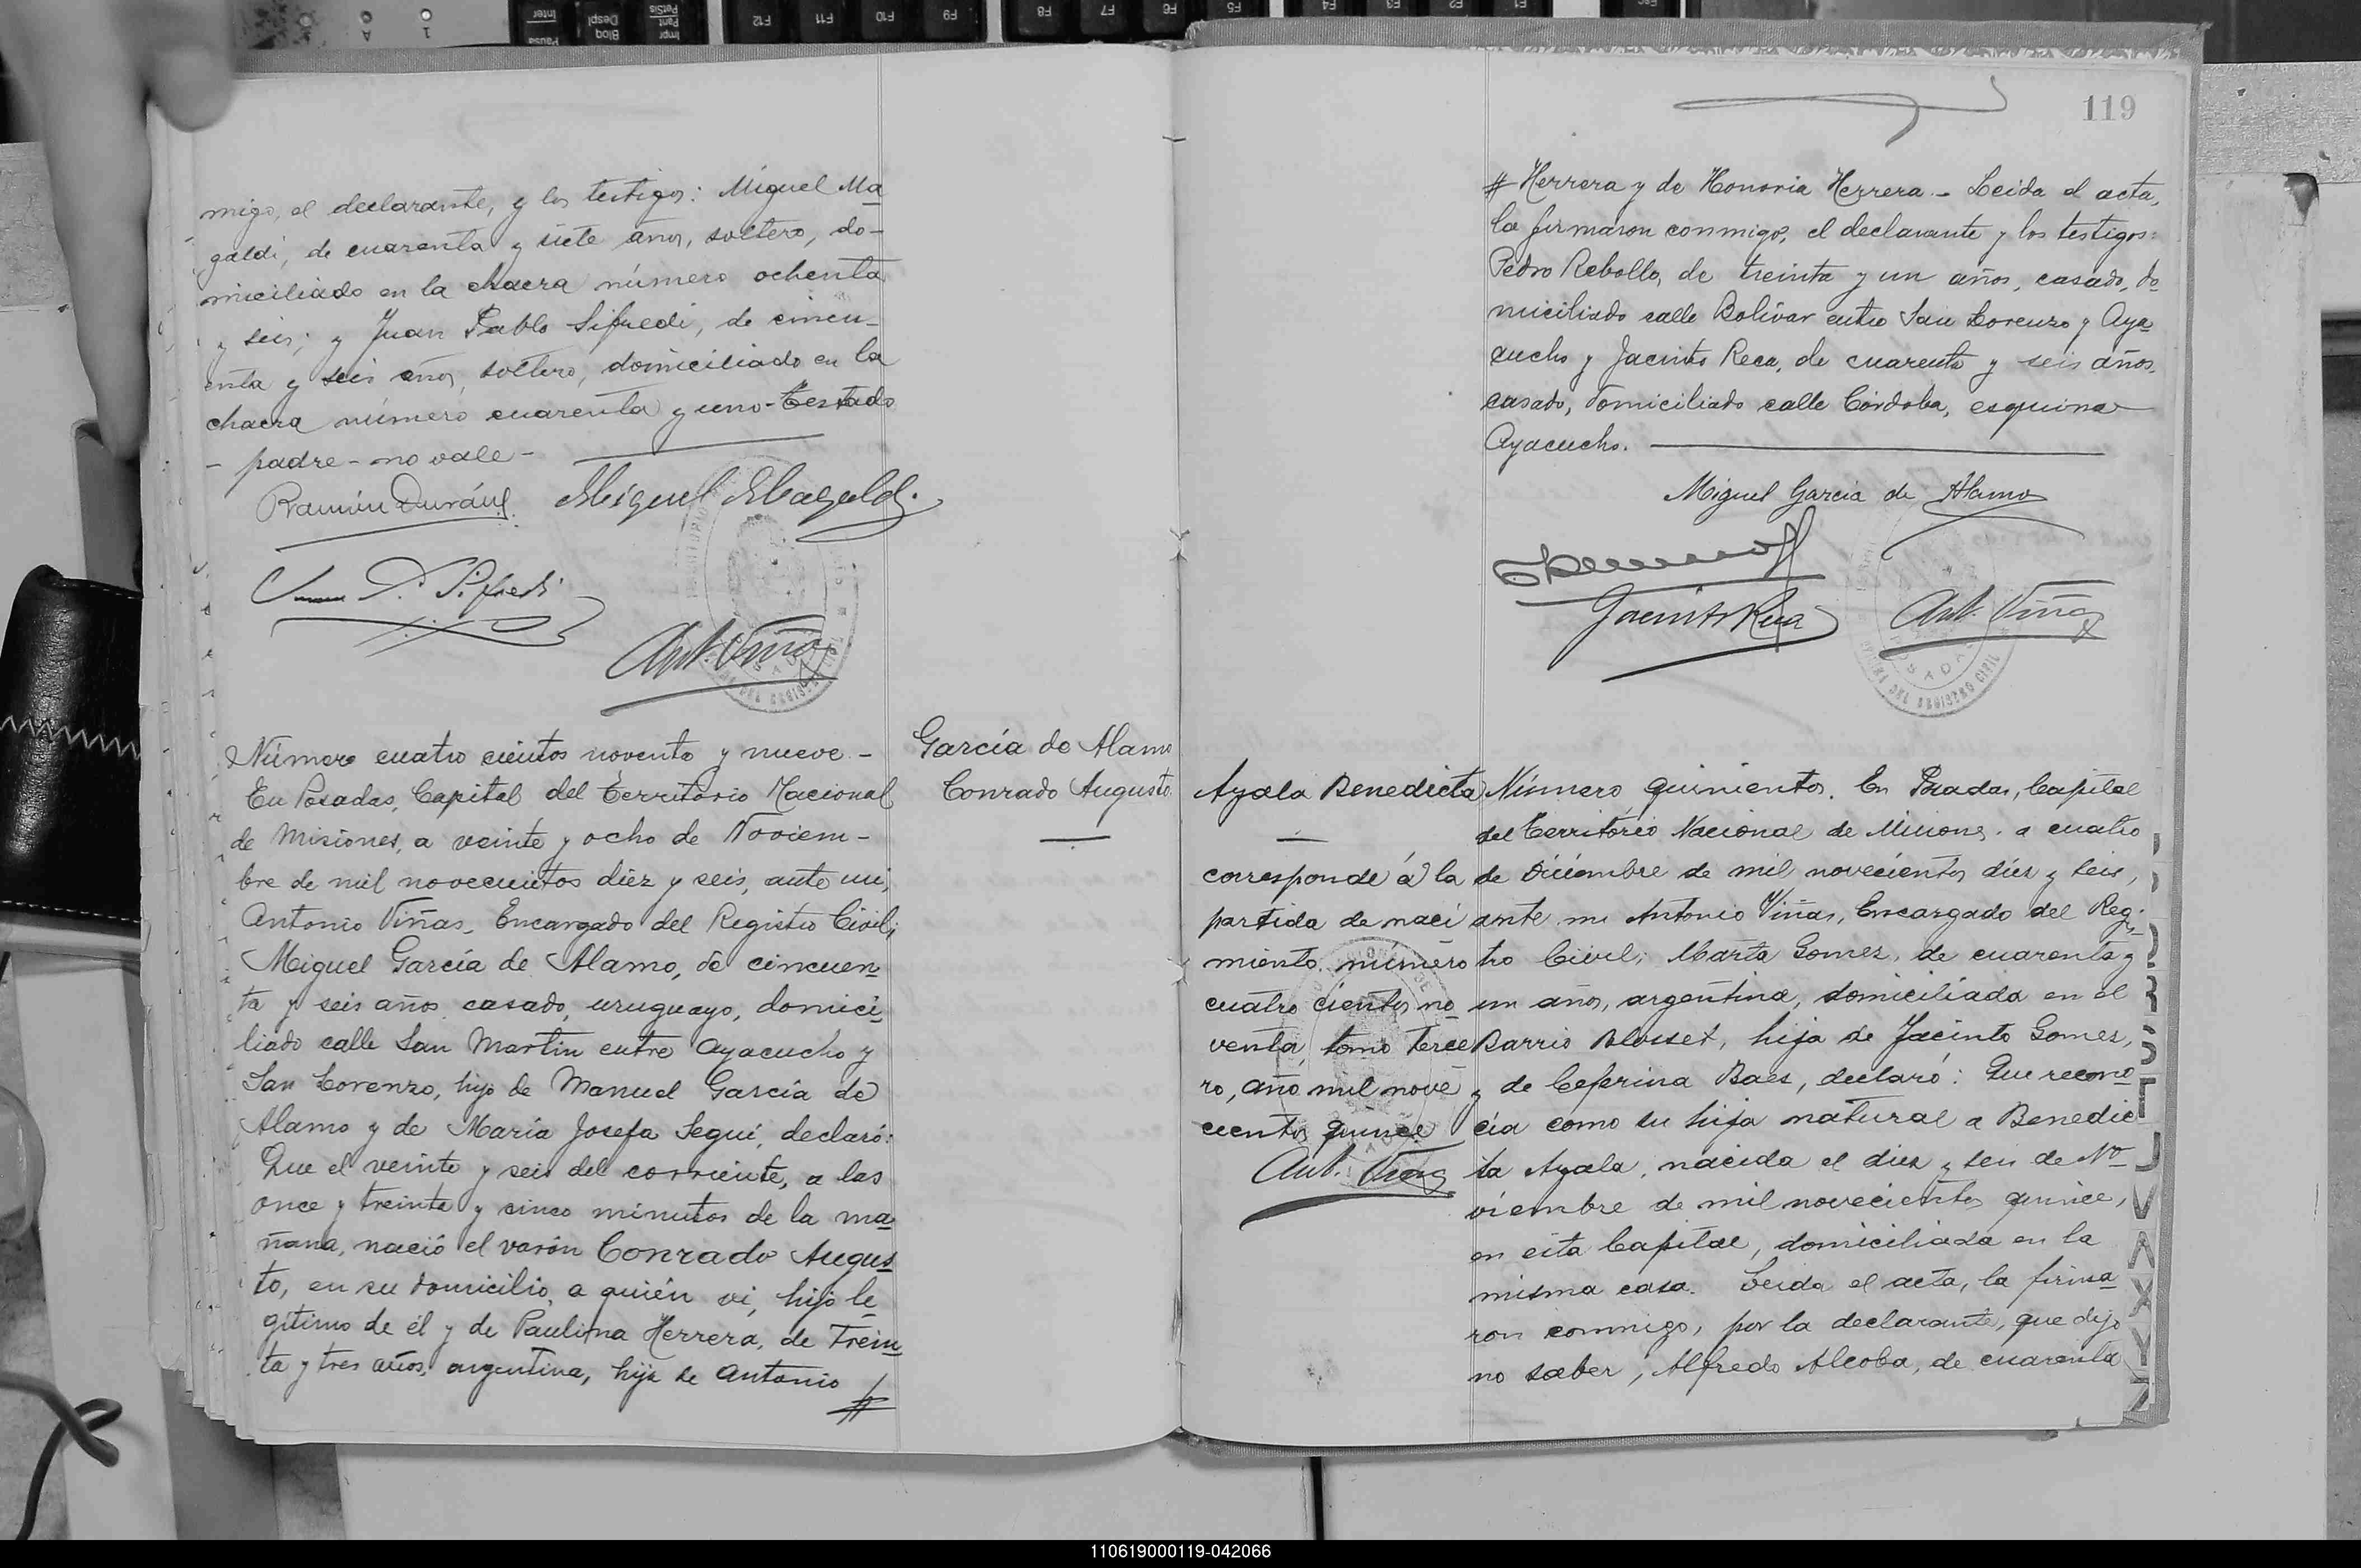 migo, el declarante, y los testigos: Miguel Ma
galdi, de cuarenta y siete años, soltero, do-
miciliado en la chacra número ochenta
y seis; y Juan Pablo Sifredi, de cincu-
enta y seis años, soltero, domiciliado en la
chacra número cuarenta y uno - Testado
- padre - no vale -
Ramón Durán Miguel Magaldi
Juan P. Sifredi
Ant. Viñas
Número cuatro cientos noventa y nueve -
En Posadas, Capital del Territorio Nacional
de Misiones, a veinte y ocho de Noviem-
bre de mil novecientos diez y seis, ante mi,
Antonio Viñas, Encargado del Registro Civil;
Miguel García de Alamo, de cincuen
ta y seis años, casado, uruguayo, domici
liado calle San Martín entre Ayacucho y
San Lorenzo, hijo de Manuel García de
Alamo y de María Josefa Seguí, declaró:
Que el veinte y seis del corriente, a las
once y treinta y cinco minutos de la ma
ñana, nació el varón Conrado Augus
to, en su domicilio, a quién vi, hijo le
gitimo de él y de Paulina Herrera, de trein
ta y tres años, argentina, hija de Antonio
#
García de Alamo
Conrado Augusto
119
# Herrera y de Honoria Herrera - Leida el acta,
la firmaron conmigo, el declarante y los testigos:
Pedro Rebollo, de treinta y un años, casado, do
miciliado calle Bolívar entre San Lorenzo y Aya
cucho y Jacinto Reca, de cuarenta y seis años,
casado, domiciliado calle Córdoba, esquina
Ayacucho.
Miguel García de Alamo
Jacinto Reca Ant. Viñas
Ayala Benedicta
corresponde á la
partida de naci
miento número
cuatro cientos no
venta, tomo terce
ro, año mil nove
cientos quince
Ant. Viñas
Número quinientos. En Posadas, Capital
del Territorio Nacional de Misiones, a cuatro
de Diciembre de mil novecientos diez y seis,
ante mi Antonio Viñas, Encargado del Regis
tro Civil; Marta Gomez, de cuarenta y
un años, argentina, domiciliada en el
Barrio Blosset, hija de Jacinto Gomez,
y de Ceferina Baez, declaró: Que recono
cía como su hija natural a Benedic
ta Ayala, nacida el diez y seis de No
viembre de mil novecientos quince,
en esta Capital, domiciliada en la
misma casa. Leida el acta, la firma
ron conmigo, por la declarante, que dijo
no saber, Alfredo Alcoba, de cuarenta
110619000119-042066